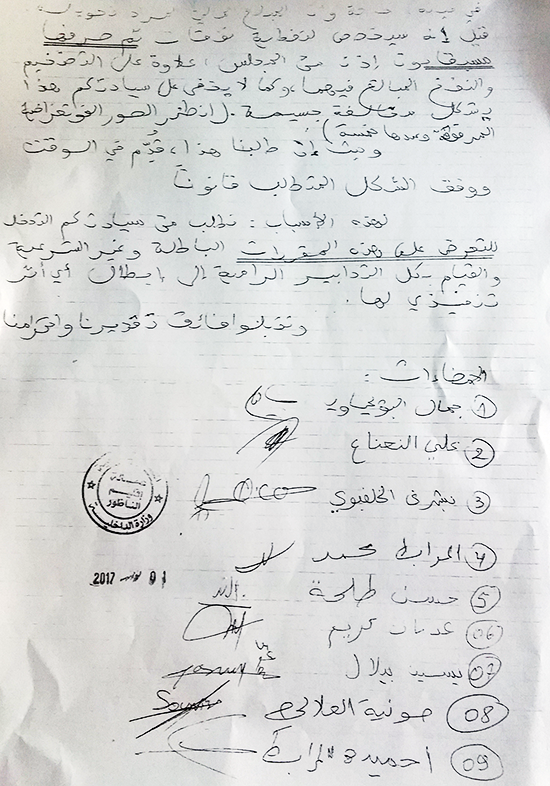 قيل إنه سيخصص لتغطية نفقات تم صرفها
مسبقا بدون إذن من المجلس، علاوة على التضخيم
والنفخ المبالغ فيهما، وكما لا يخفى على سيادتكم هذا
يشكل مخالفة جسيمة. (انظر الصور الفوتوغرافية
المرفقة وعددها خمسة)
وحيث إن طلبنا هذا، قُدِّم في الوقت
ووفق الشكل المتطلب قانوناً
لهذه الأسباب: نطلب من سيادتكم التدخل
للتعرض على هذه المقررات الباطلة وغير الشرعية
والقيام بكل التدابير الرامية إلى إبطال أي أثر
تنفيذي لها.
وتقبلوا فائق تقديرنا واحترامنا
الإمضاءات:
1 جمال
2 علي النعناع
3 بشرى الخلفيوي
4 المرابط محمد
5 حسن طلحة
06 عدنان كريم
07 يسين بيلال
08 صونية العلالي
09 أحميدة المرابط
إقليم
الناظور
وزارة الداخلية
01 نونبر 2017